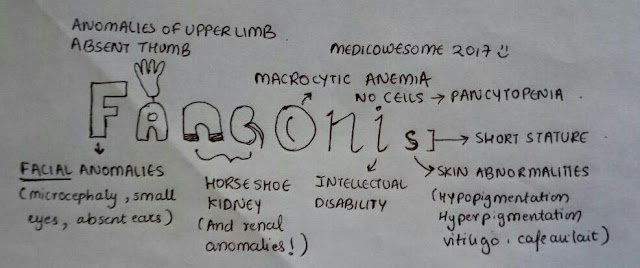 ANOMALIES OF UPPER LIMB
ABSENT THUMB
MEDICOWESOME 2017
MACROCYTIC ANEMIA
NO CELLS → PANCYTOPENIA.
FANCONIS
→ SHORT STATURE
FACIAL ANOMALIES
(microcephaly, small
eyes, absent ears)
HORSE SHOE
KIDNEY
(And renal
anomalies!)
INTELLECTUAL
DISABILITY
SKIN ABNORMALITIES
(Hypopigmentation
Hyperpigmentation
vitiligo, cafe au lait)